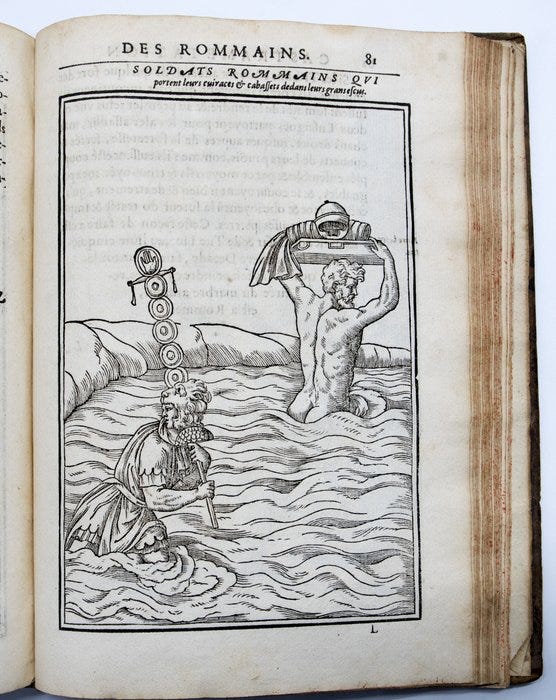 DES ROMMAINS.
81
SOLDATS ROMMAINS QVI
portent leurs cuiraces & cabassets dedans leurs grans escuz.
L